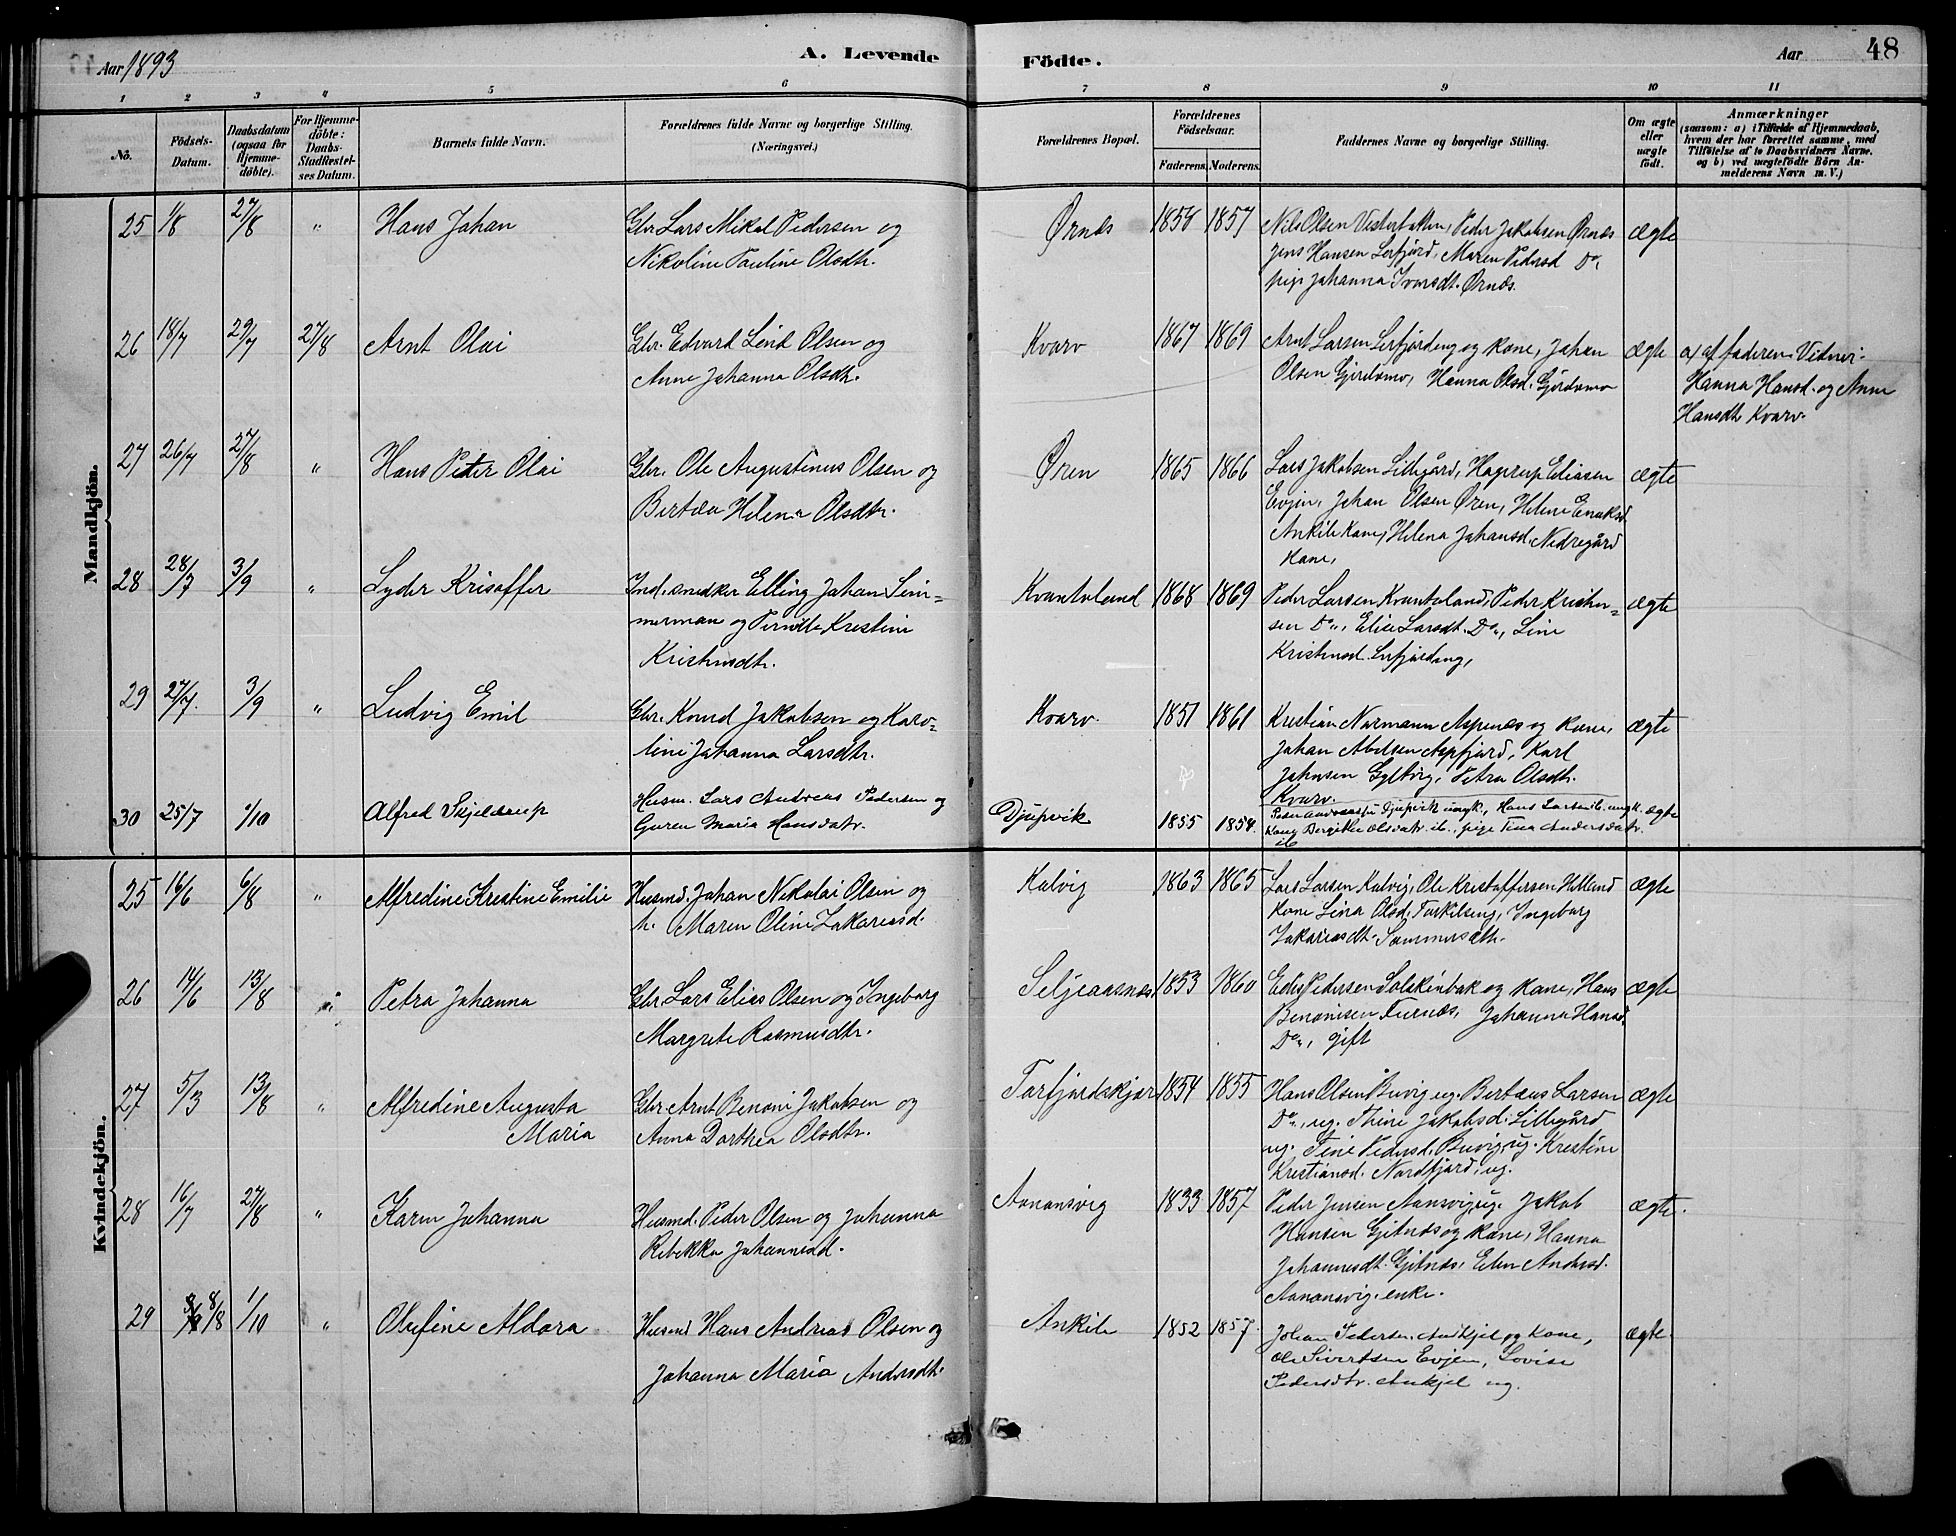 Aar 1893
A. Levende
Födte.
Aar
48
1 2 3 4 5 6 7 8 9 10 11
No.
Födsels-
Datum.
Daabsdatum
(ogsaa for
Hjemme-
döbte).
For Hjemme-
döbte:
Daabs-
Stadfæstel-
ses Datum.
Barnets fulde Navn.
Forældrenes fulde Navne og borgerlige Stilling.
(Næringsvei.)
Forældrenes Bopæl.
Forældrenes
Födselsaar.
Faderens. Moderens.
Faddernes Navne og borgerlige Stilling.
Om ægte
eller
uægte
født.
Anmærkninger
(saasom: a) i Tilfælde af Hjemmedaab,
hvem der har forrettet samme, med
Tilföielse af to Daabsvidners Navne,
og b) ved uægtefödte Börn An-
melderens Navn m. V.)
Mandkjön.
25 1/8 27/8 " Hans Johan
Gbr. Lars Mikal Pedersen og
Nikoline Pauline Olsdtr.
Ørnes 1858 1857
Nils Olsen Vesterbakken, Peder Jakobsen Ørnes
Jens Hansen Leifjord, Maren Pedersd Do,
pige Johanna Ivarsdt. Ørnes.
ægte
26 18/7 29/7 27/8 Arnt Olai
Gbr. Edvard Lind Olsen og
Anne Johanna Olsdtr.
Kvarv 1867 1869
Arnt Larsen Leifjordeng og kone, Johan
Olsen Gjerdamo, Hanna Olsd. Gjerdamo
ægte
a) af faderen. Vidner.
Hanna Hansd. og Anne
Hansdtr Kvarv.
27 26/7 27/8 " Hans Peter Olai
Gbr. Ole Augustinus Olsen og
Bertea Helena Olsdtr.
Øren 1865 1866
Lars Jakobsen Lillegård, Hagerup Eliasen
Evjen, Johan Olsen Øren, Helene Enoksd
Ankile kone, Helena Johansd. Nedregård
kone,
ægte
28 28/7 3/9 " Lyder Krisoffer
Ind. snedker Elling Johan Sim=
merman og Pernille Kristine
Kristensdtr.
Kvantoland 1868 1869
Peder Larsen Kvantoland, Peder Kristen=
sen Do., Elise Larsdt. Do., Line
Kristensd. Leifjordeng,
ægte
29 27/7. 3/9 " Ludvig Emil
Gbr. Knud Jakobsen og Karo=
line Johanna Larsdtr.
Kvarv. 1851 1861
Kristian Normann Aspenes og kone,
Johan Abelsen Aspfjord, Karl
Johnsen Gyltvig, Petra Olsdtr.
Kvarv.
ægte
30 25/7 1/10 Alfred Skjeldrup
Husm. Lars Andreas Pedersen og
Guren Maria Hansdatr.
Djupvik 1855 1854.
Peder Andreassen Djupvik ungk., Hans Larsen ib. ungk.
Kone Bergitte Olsdatr. ib., pige Tina Andersdatr.
ib
ægte
Kvindekjön.
25 16/6 6/8 " Alfredine Krestine Emilie
Husmd. Johan Nikolai Olsen og
h. Maren Oline Zakariasd.
Kalvig 1863 1865
Lars Larsen Kalvig, Ole Kristoffersen Helland
kone Lina Olsd. Torkilseng, Ingeborg
Zakariasdt. Sommerseth.
ægte
26 14/6 13/8 Petra Johanna
Gbr. Lars Elias Olsen og Ingeborg
Margrete Rasmusdtr.
Seljeaasnes 1853 1860
Edis Pedersen Solskinbak og kone, Hans
Benonisen Furnes, Johanna Hansd.
Do., gift
ægte
27 5/3 13/8 " Alfredine Augusta
Maria
Gbr Arnt Benoni Jakobsen og
Anna Dorthea Olsdtr.
Torfjordskjær 1854 1855
Hans Olsen Buvig ug. Berteus Larsen
Do., ug. Thine Jakobsd. Lillegård
ug. Tine Pedersd. Buvig, ug. Krestine
Kristiansd. Nordfjord, ug.
ægte
28 16/7 27/8 " Karen Johanna
Husmd. Peder Olsen og Johanna
Rebekka Johannesd.
Aanansvig 1833 1857
Peder Jensen Aanansvig, ug. Jakob
Hansen Gjelnes og kone, Hanna
Johannesdt. Gjelnes, Elen Andersd.
Aanansvig. enke.
ægte.
29 8/8 1/10 " Olufine Aldora
Husmd Hans Andreas Olsen og
Johanna Maria Andersdtr.
Ankile 1852 1857.
Johan Pedersen Ankjel og Kone,
Ole Sivertsen Evjen, Lovise
Pedersdtr. Ankjel ug.
ægte.